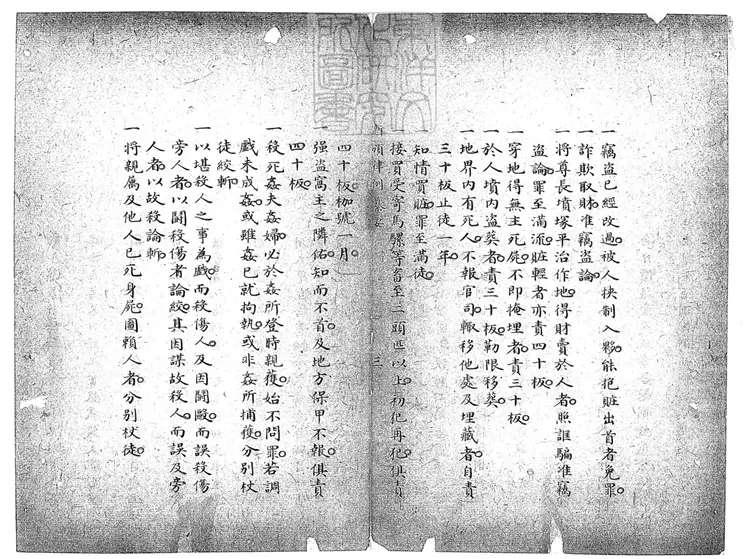 一竊盜已經改過。被人挾制入夥能抱賍出首者免罪。
一詐欺取財准竊盜論。
一將尊長墳塚平治作地。得財賣於人者。照誆騙准竊
盜論。罪至滿流。賍輕者亦責四十板。
一穿地得無主死屍。不即掩埋者。責三十板。
一於人墳內盜葬者。責三十板。勒限移葬。
一地界內有死人。不報官司。輒移他處及埋藏者。自責
三十板止徒一年。
一知情買賍。罪至滿徒。
一接買受寄馬騾等畜至二頭匹以上。初犯再犯。俱責
三
四十板。枷號一月。
一强盜窩主之隣佑。知而不首。及地方保甲不報。俱責
四十板。
一殺死姦夫姦婦。必於姦所登時親獲。始不問罪。若調
戲未成姦。或雖姦已就拘執。或非姦所捕獲。分別杖
徒絞斬。
一以堪殺人之事為戲。而殺傷人。及因鬪毆。而誤殺傷
旁人者。以鬪殺傷者論絞。其因謀故殺人。而誤及旁
人者。以故殺論斬。
一將親屬及他人已死身屍。圖賴人者。分別杖徒。